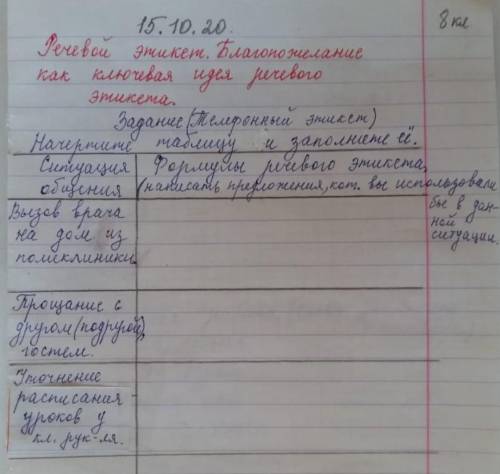 15.10.20.
8 кл
Речевой этикет. Благопожелание
как ключевая идея речевого
этикета.
Задание (Телефонный этикет)
Начертите таблицу и заполните её.
Ситуация общения
Формулы речевого этикета,
(написать предложения, кот. вы использовали
бы в дан-
ной
ситуации.
Вызов врача
на дом из
поликлиники
Прощание с
другом (подругой),
гостем.
Уточнение
расписания
уроков у
кл. рук-ля.